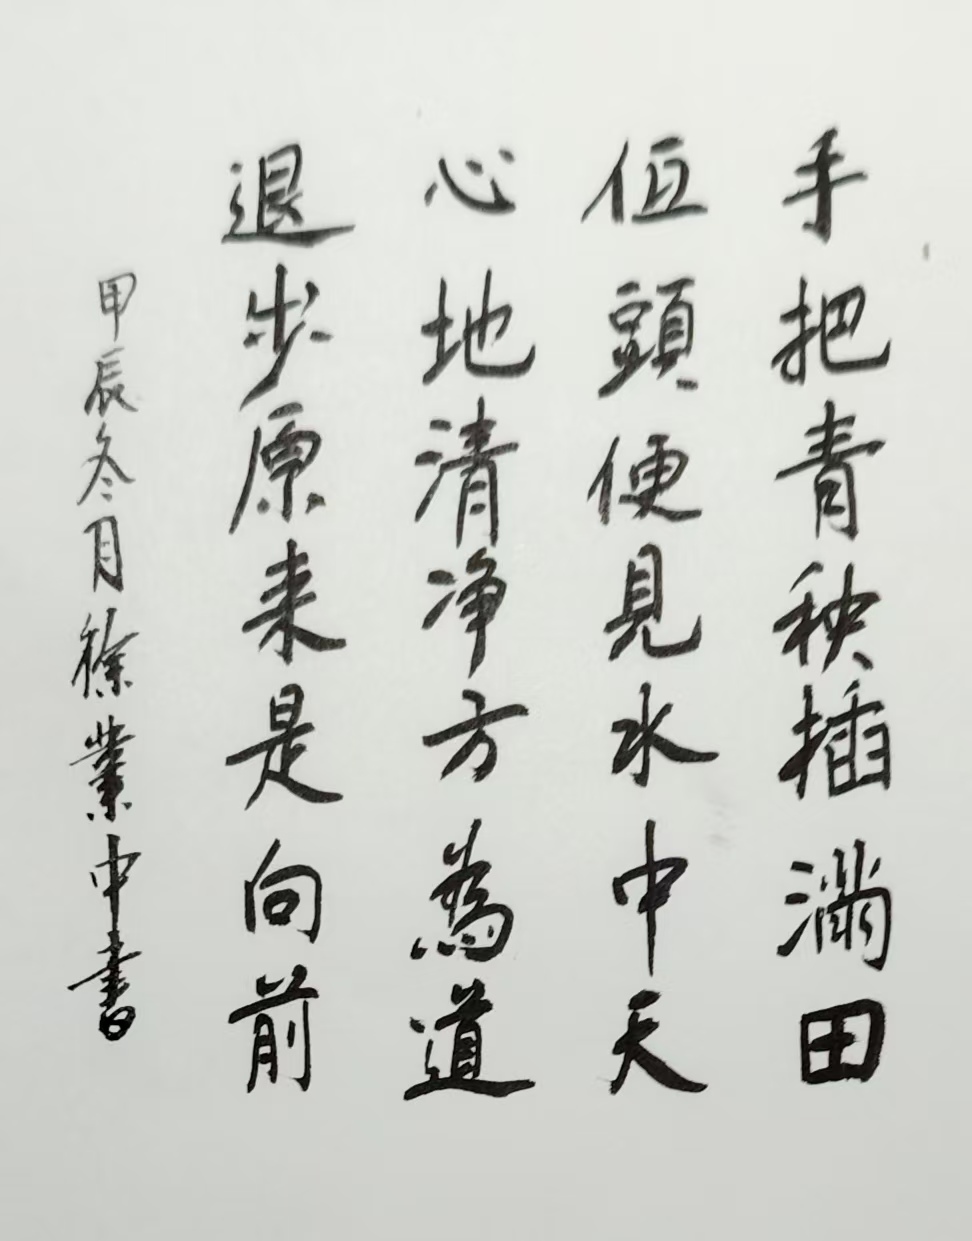 手把青秧插满田
低頭便見水中天
心地清净方為道
退步原来是向前
甲辰冬月徐業中書